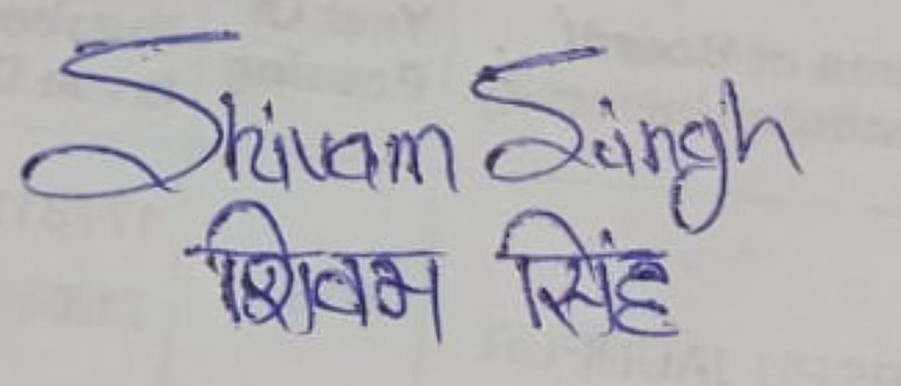 Shivam Singh
शिवम सिंह